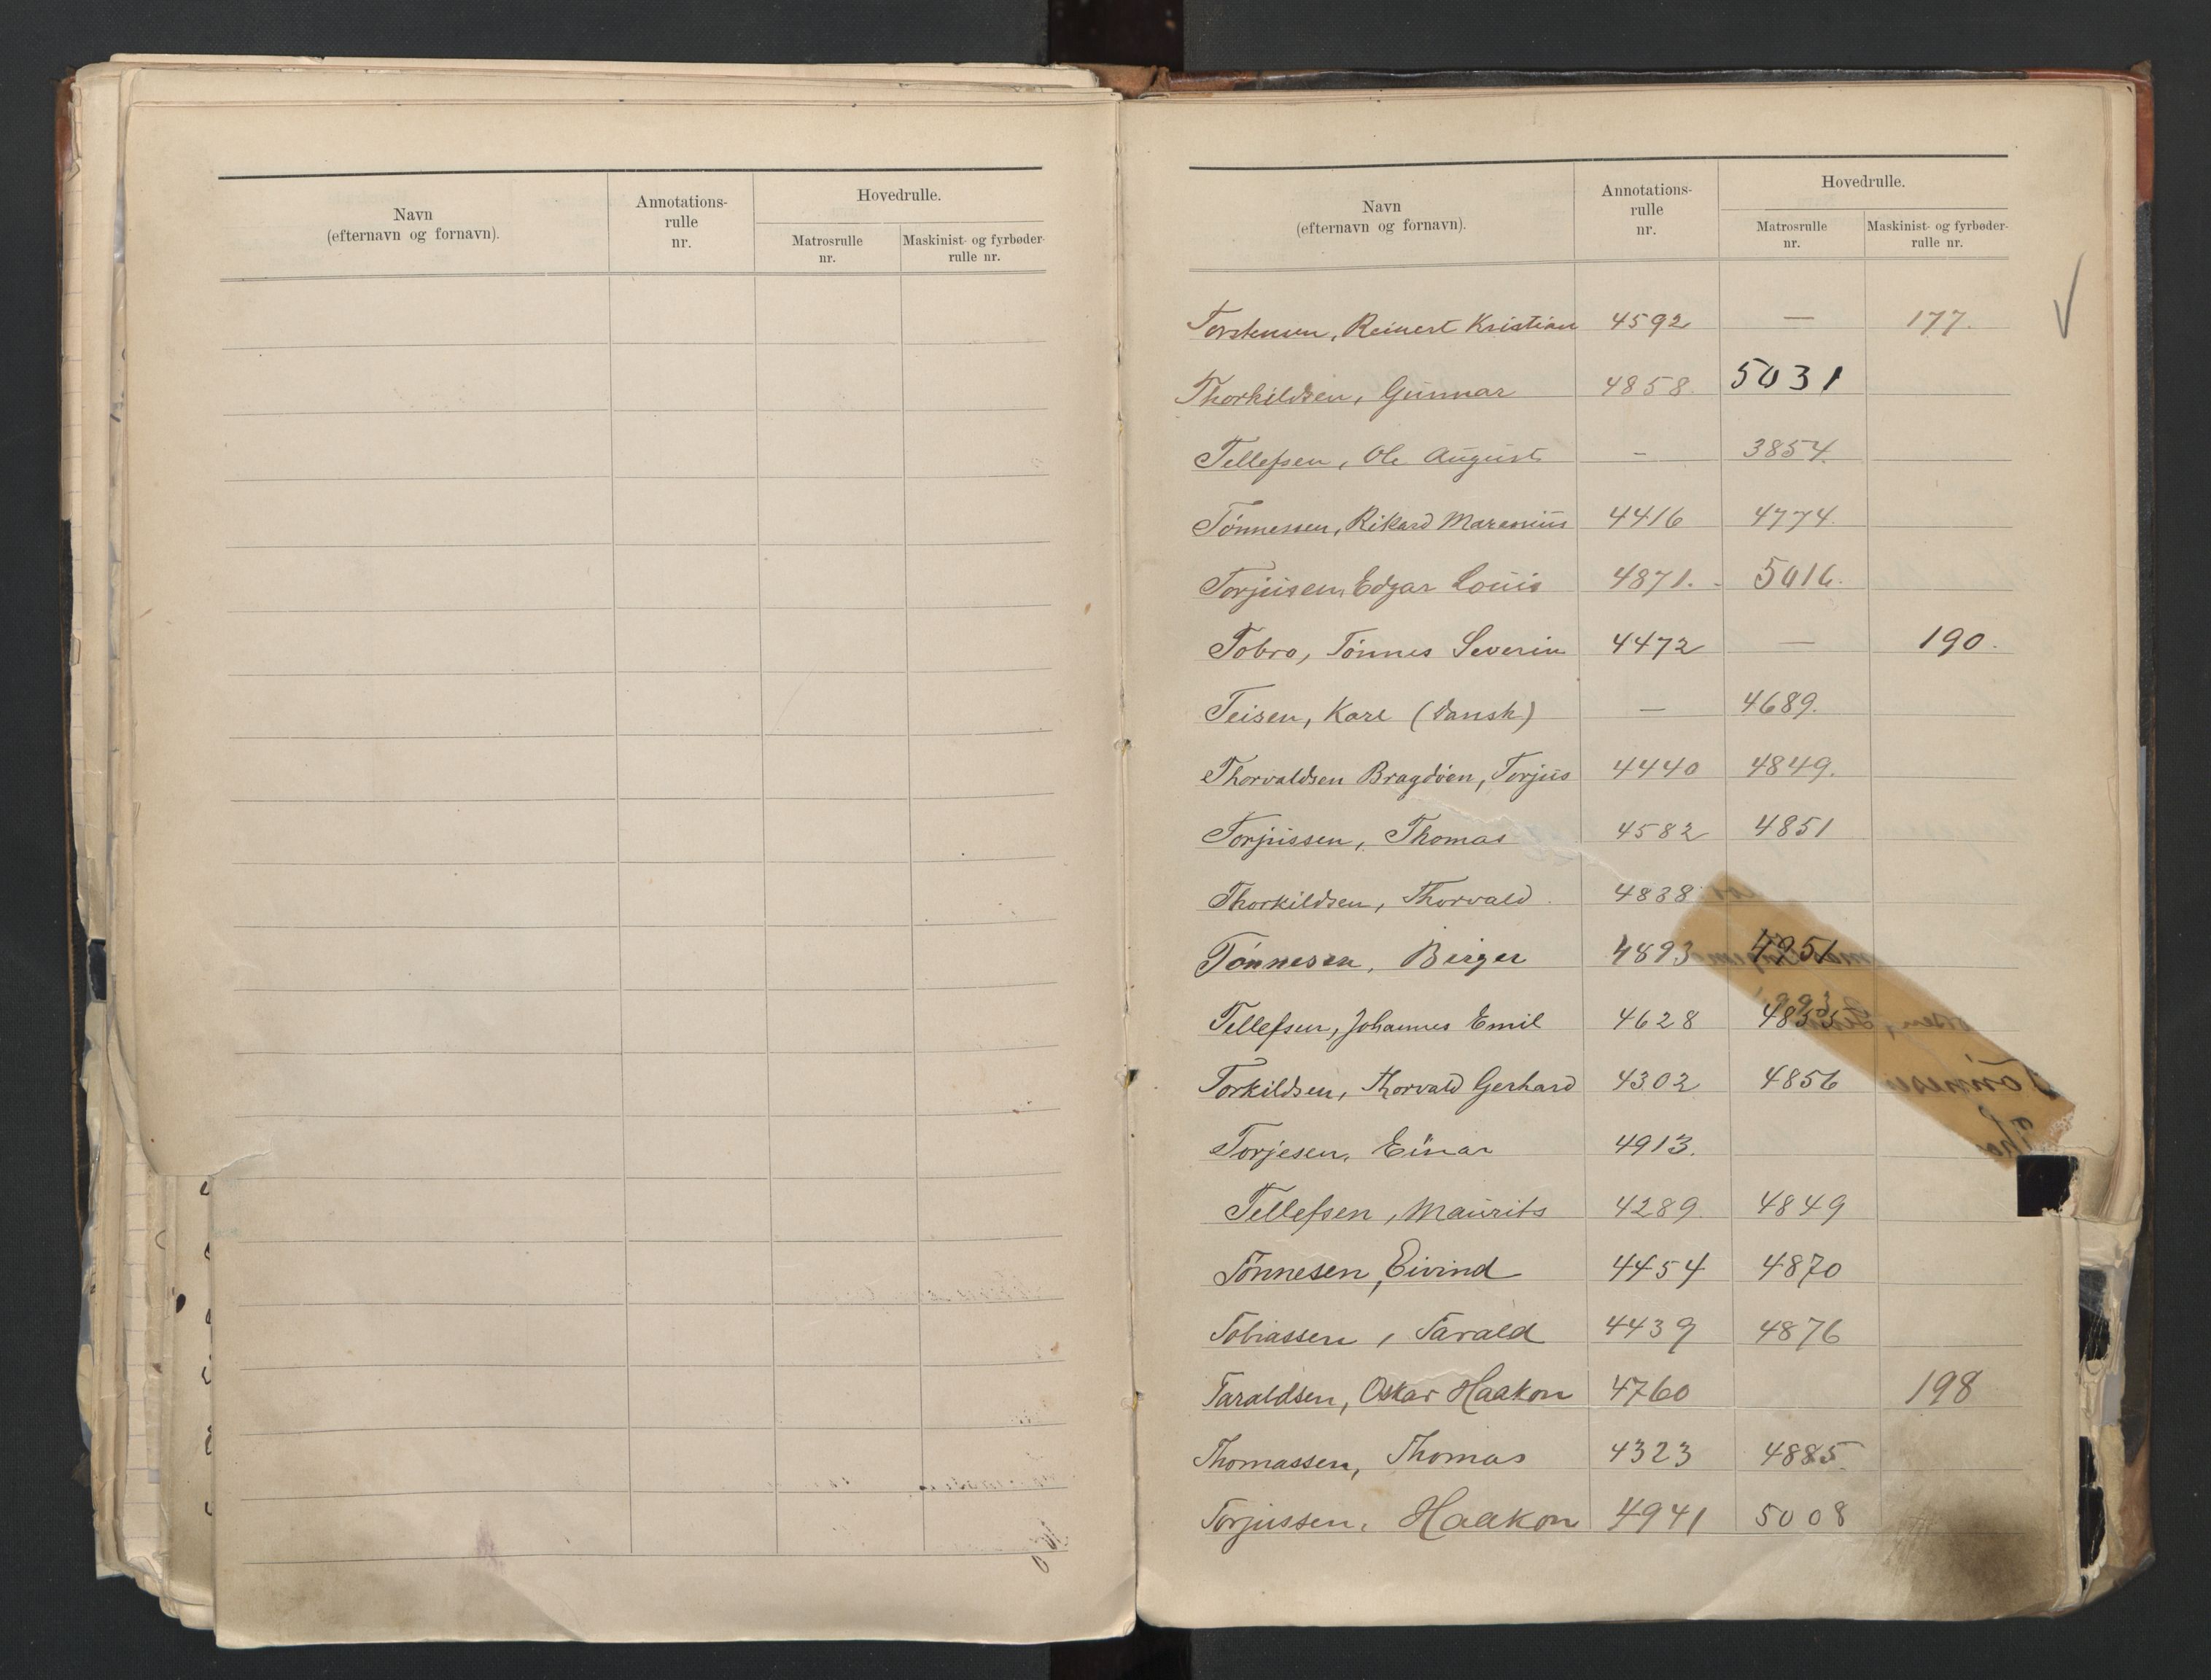 Navn
(efternavn og fornavn).
Annotations-
rulle
nr.
Hovedrulle.
Matrosrulle
nr.
Maskinist- og fyrbøder-
rulle nr.
Navn
(efternavn og fornavn).
Annotations-
rulle
nr.
Hovedrulle.
Matrosrulle
nr.
Maskinist- og fyrbøder-
rulle nr.
Torstensen, Reinert Kristian 4592 — 177.
Thorkildsen, Gunnar 4858. 5031
Tellefsen, Ole August - 3854.
Tønnessen, Rikard Marenius 4416 4774.
Torjusen, Edgar Louis 4871. 5016.
Tobro, Tønnes Severin 4472 — 190.
Teisen, Karl (dansk) — 4689.
Thorvaldsen Bragdøen, Torjus 4440 4849.
Torjussen, Thomas 4582 4851
Thorkildsen, Thorvald. 4838
Tønnesen, Birger 4893
Tellefsen, Johannes Emil 4628
Torkildsen, Thorvald Gerhard 4302 4856
Torjesen, Einar 4913.
Tellefsen, Maurits 4289. 4849
Tønnesen, Eivind 4454 4870
Tobiassen, Tarald 4439 4876
Taraldsen, Oskar Haakon 4760 198
Thomassen, Thomas 4323 4885.
Torjussen, Haakon 4941 5008